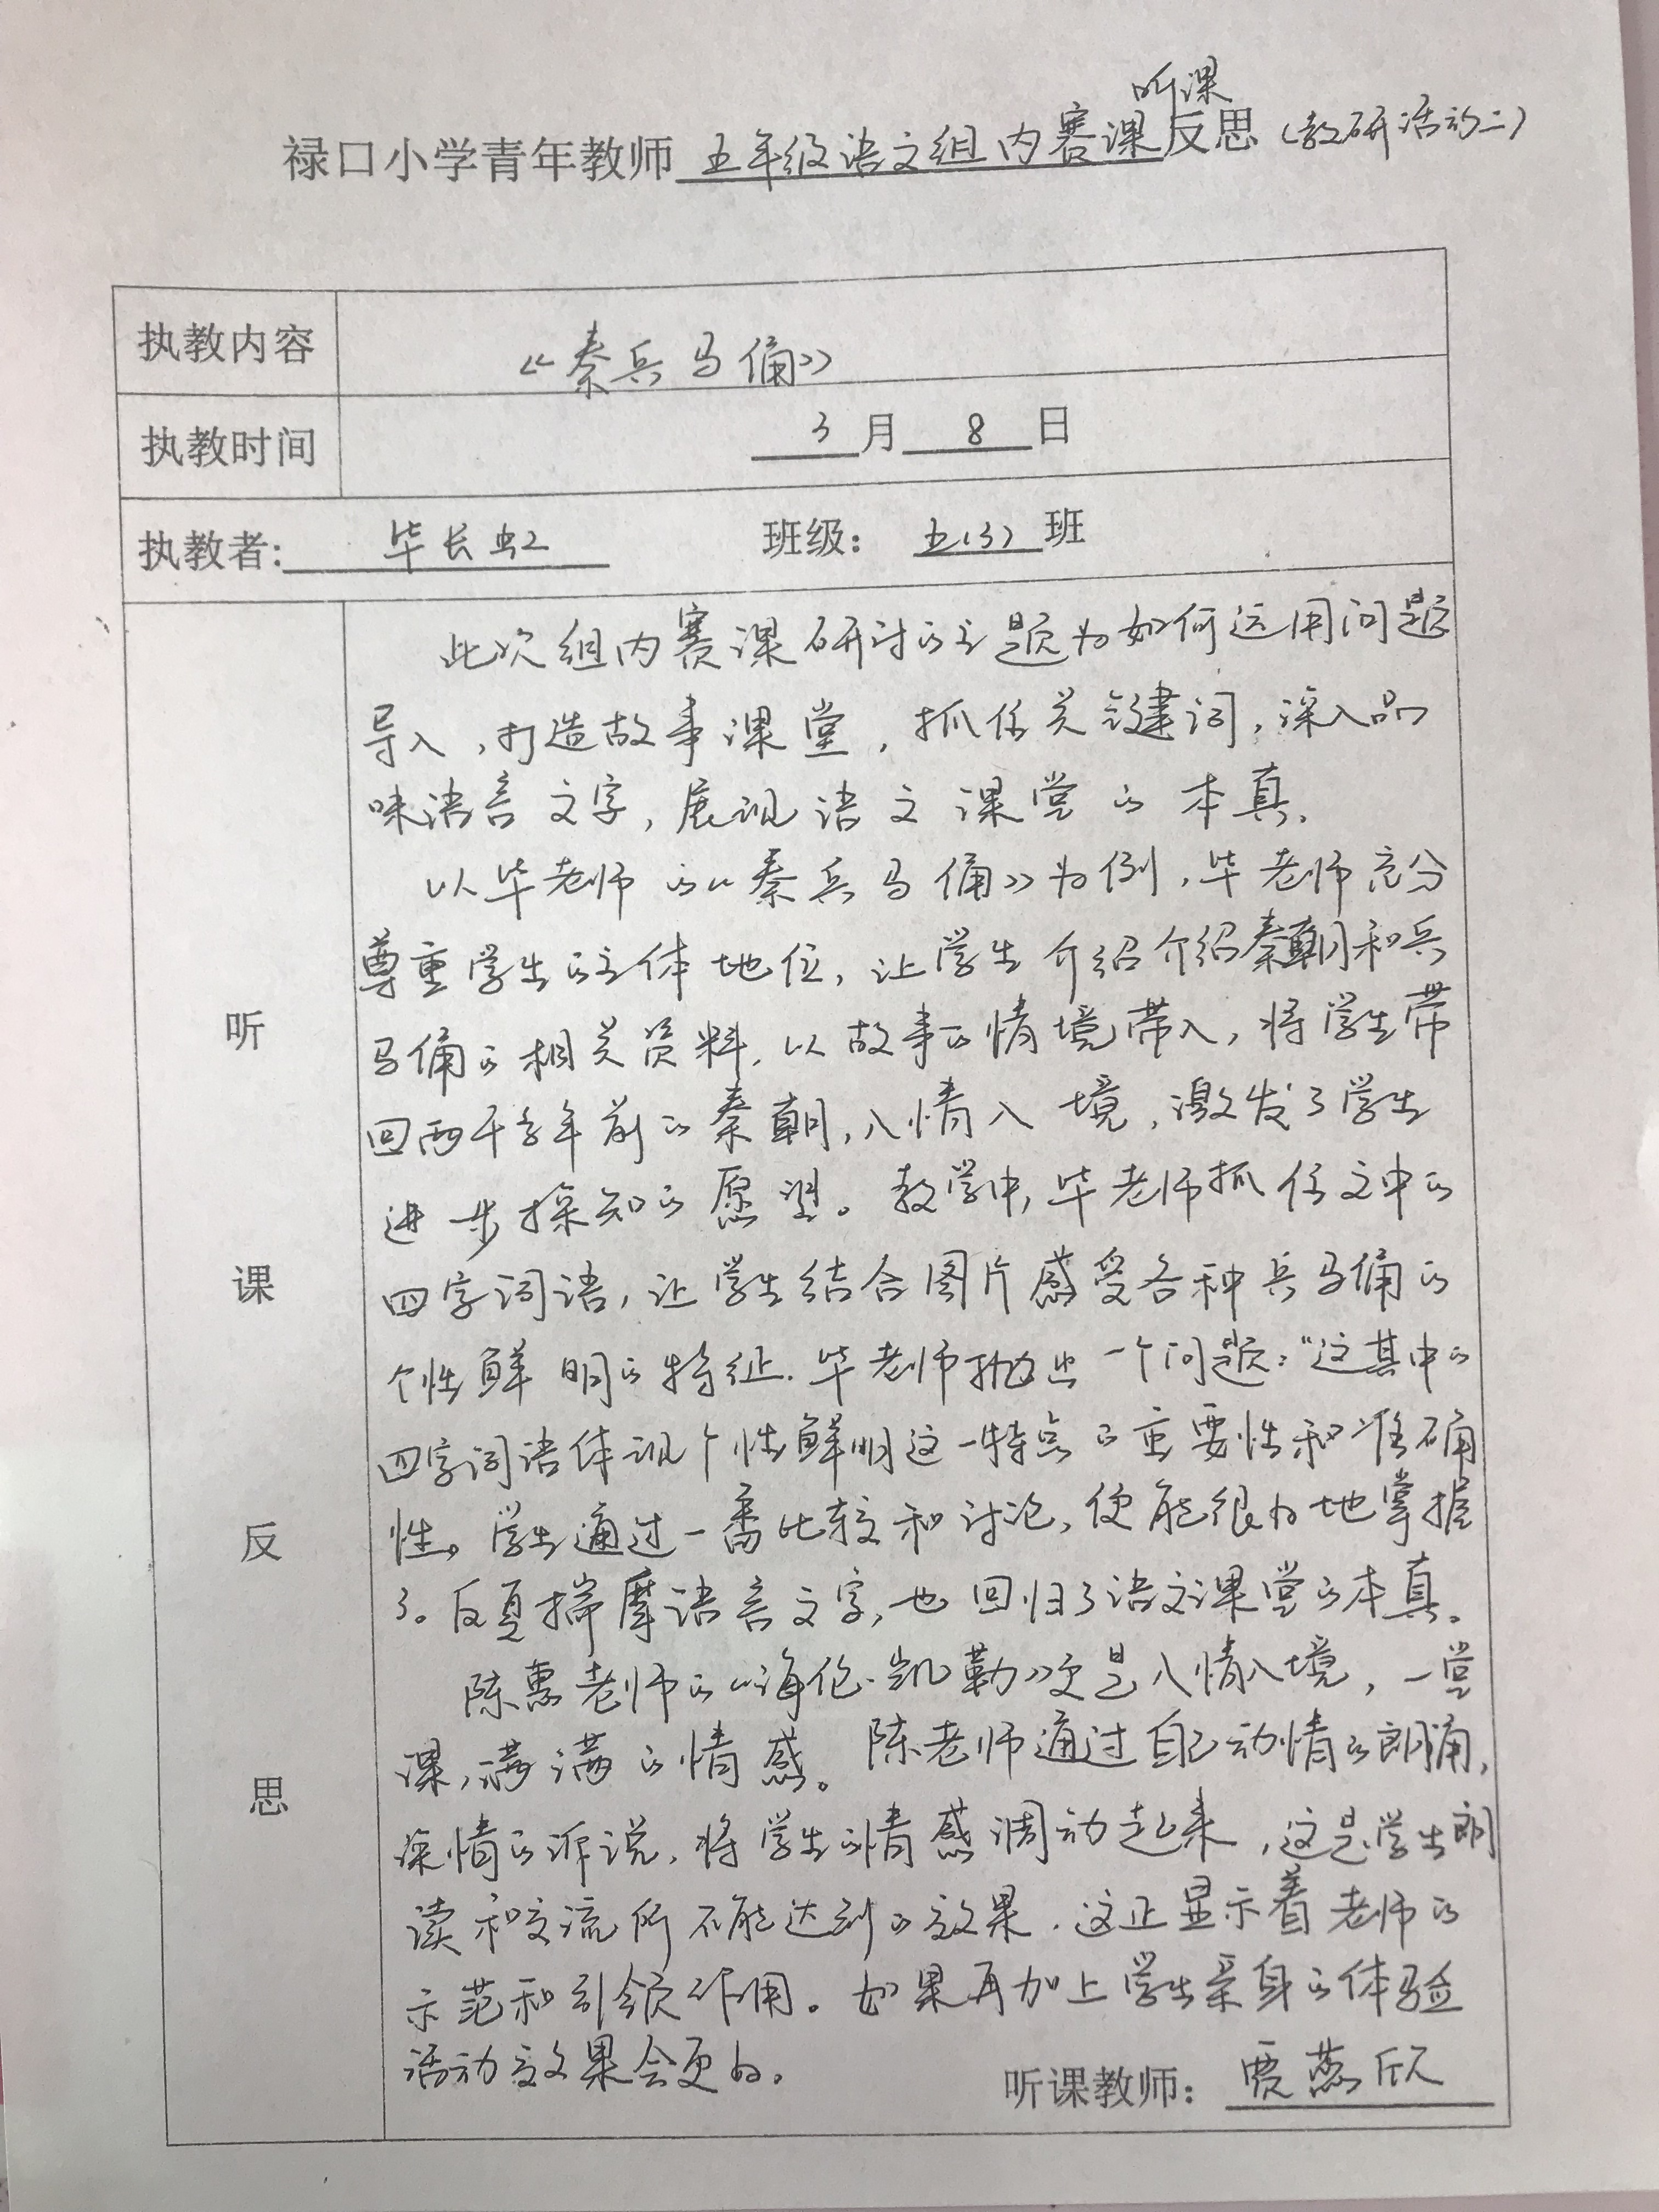 听课
禄口小学青年教师 五年级语文组内赛课反思（教研活动二）
执教内容 《秦兵马俑》
执教时间 3月8日
执教者: 毕长虹 班级： 五(3)班
听课反思
此次组内赛课研讨的主题为如何运用问题
导入，打造故事课堂，抓住关键词，深入品
味语言文字，展现语文课堂的本真。
以毕老师的《秦兵马俑》为例，毕老师充分
尊重学生的主体地位，让学生介绍介绍秦朝和兵
马俑的相关资料，以故事的情境带入，将学生带
回两千多年前的秦朝，入情入境，激发了学生
进一步探知的愿望。教学中，毕老师抓住文中的
四字词语，让学生结合图片感受各种兵马俑的
个性鲜明的特征。毕老师抛出一个问题：“这其中的
四字词语体现个性鲜明这一特点的重要性和准确
性。学生通过一番比较和讨论，便能很好地掌握
了。反复揣摩语言文字，也回归了语文课堂的本真。
陈惠老师的《海伦·凯勒》更是入情入境，一堂
课，满满的情感。陈老师通过自己动情的朗诵，
深情的诉说，将学生的情感调动起来，这是学生朗
读和交流所不能达到的效果。这正显示着老师的
示范和引领作用。如果再加上学生亲身的体验
活动效果会更好。
听课教师： 贾燕欣